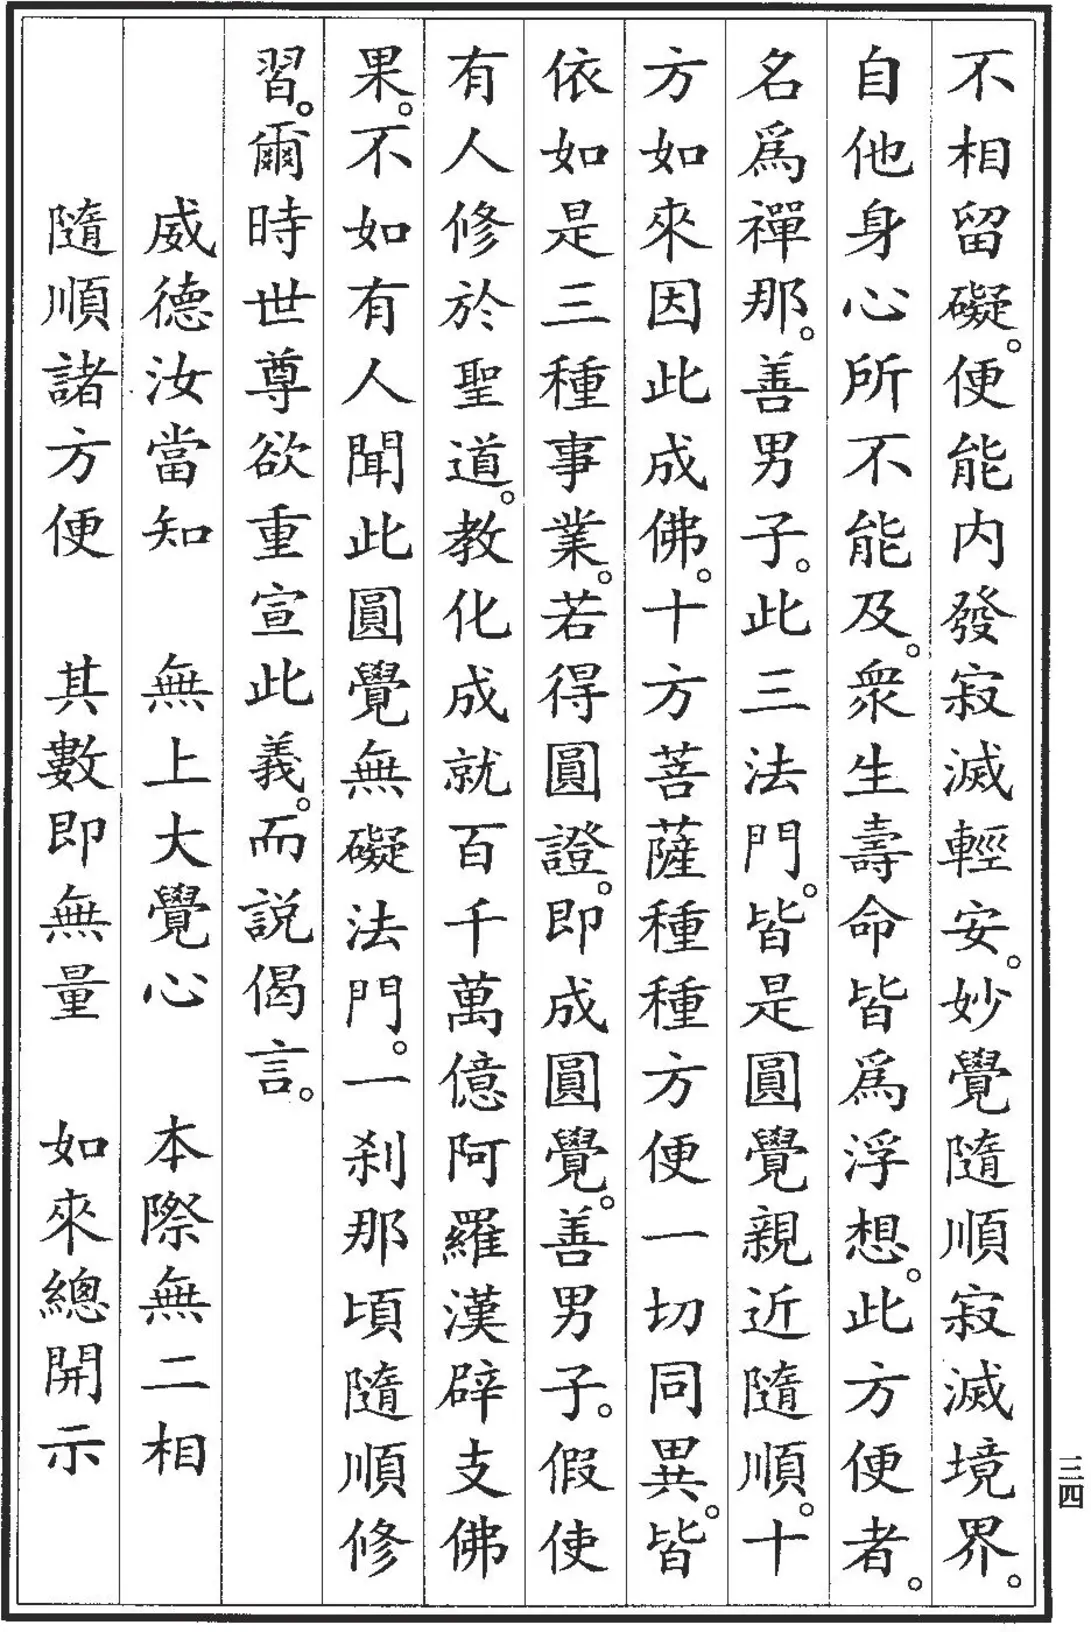 不相留礙。便能内發寂滅輕安。妙覺隨順寂滅境界。
自他身心所不能及。衆生壽命皆爲浮想。此方便者。
名爲禪那。善男子。此三法門。皆是圓覺親近隨順。十
方如來因此成佛。十方菩薩種種方便一切同異。皆
依如是三種事業。若得圓證。即成圓覺。善男子。假使
有人修於聖道。教化成就百千萬億阿羅漢辟支佛
果。不如有人聞此圓覺無礙法門。一刹那頃隨順修
習。爾時世尊欲重宣此義。而説偈言。
威德汝當知　無上大覺心　本際無二相
隨順諸方便　其數即無量　如來總開示
三四